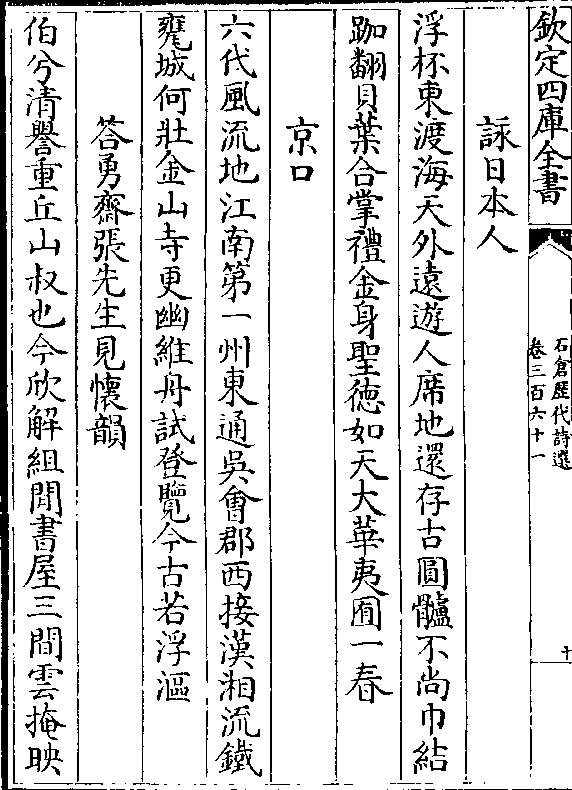 欽定四庫全書
石倉歴代詩選
卷三百六十一
十
詠日本人
浮杯東渡海天外逺遊人席地還存古圓髗不尚巾結
跏翻貝葉合掌禮金身聖徳如天大華夷囿一春
京口
六代風流地江南第一州東通吳㑹郡西接漢湘流鐵
甕城何壯金山寺更幽維舟試登覽今古若浮漚
答勇齋張先生見懷韻
伯兮清譽重丘山叔也今欣解組閒書屋三間雲掩映